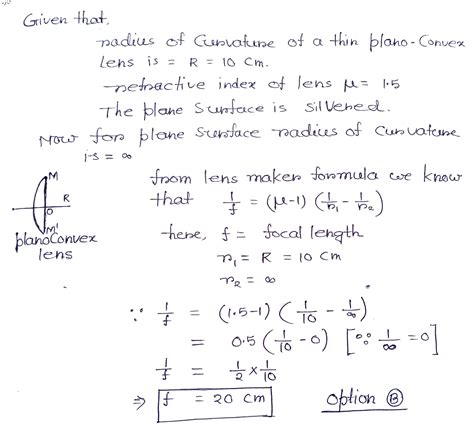 Given that,
radius of Curvature of a thin plano-Convex
Lens is = R = 10 Cm.
refractive index of lens μ = 1.5
The plane Surface is silvered.
Now for plane Surface radius of Curvature
i-s = ∞
from lens maker formula we know
that 1/f = (μ-1) (1/r₁ - 1/r₂)
M
R
O
M'
planoConvex
lens
here, f = focal length
r₁ = R = 10 Cm
r₂ = ∞
∵ 1/f = (1.5-1) (1/10 - 1/∞)
= 0.5 (1/10 - 0) [∵ 1/∞ = 0]
1/f = 1/2 × 1/10
⇒ f = 20 cm
option Ⓑ